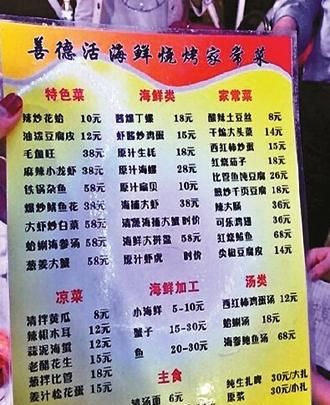 善德活海鲜烧烤家常菜
特色菜
辣炒花蛤 10元
油泼豆腐皮 12元
毛血旺 38元
麻辣小龙虾 38元
铁锅杂鱼 58元
爆炒鱿鱼花 38元
大虾炒白菜 58元
蛤蜊海参汤 58元
葱姜大蟹 58元
海鲜类
酱爆丁螺 18元
虾酱炒鸡蛋 15元
原汁生蚝 18元
原汁海螺 28元
原汁扇贝 10元
海捕大虾 38元
清蒸海捕大蟹 时价
海鲜大拼盘 58元
原汁虾虎 时价
家常菜
酸辣土豆丝 8元
干煸大头菜 14元
西红柿炒蛋 14元
红烧茄子 18元
比管鱼炖豆腐 26元
葱炒千页豆腐 18元
辣大肠 36元
可乐鸡翅 36元
红烧鲅鱼 68元
尖椒豆腐皮 14元
凉菜
清拌黄瓜 8元
辣根木耳 12元
蒜泥海蜇 12元
老醋花生 15元
葱拌比管 18元
姜汁松花蛋 15元
海鲜加工
小海鲜 5-10元
蟹子 15-30元
鱼 20-30元
主食
清汤面 6元
汤类
西红柿鸡蛋汤 12元
蛤蜊汤 18元
海参鲍鱼汤 68元
纯生扎啤 30元/大扎
原浆 30元/小扎